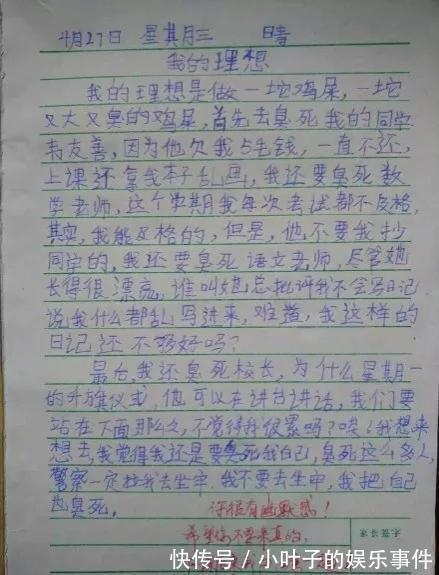 4月27日 星期三 晴
我的理想
我的理想是做一坨鸡屎,一坨
又大又臭的鸡屎,首先去臭死我的同学
韦友善,因为他欠我5毛钱,一直不还,
上课还拿我本子乱画,我还要臭死数
学老师,这个学期我每次考试都不及格,
其实,我能及格的,但是,他不要我抄
同学的,我还要臭死语文老师,尽管她
长得很漂亮,谁叫她总批评我不会写日记
说我什么都乱写进来,难道,我这样的
日记还不够好吗?
最后,我还臭死校长,为什么星期一
的升旗仪式,他可以在讲台讲话,我们要
站在下面那么久,不觉得我很累吗?唉!我想来
想去,我觉得我还是要臭死我自己,臭死这么多人,
警察一定拉我去坐牢,我不要去坐牢,我把自己
也臭死。
你很有幽默感!
希望你不要来真的。
家长签字
快传号/小叶子的娱乐事件